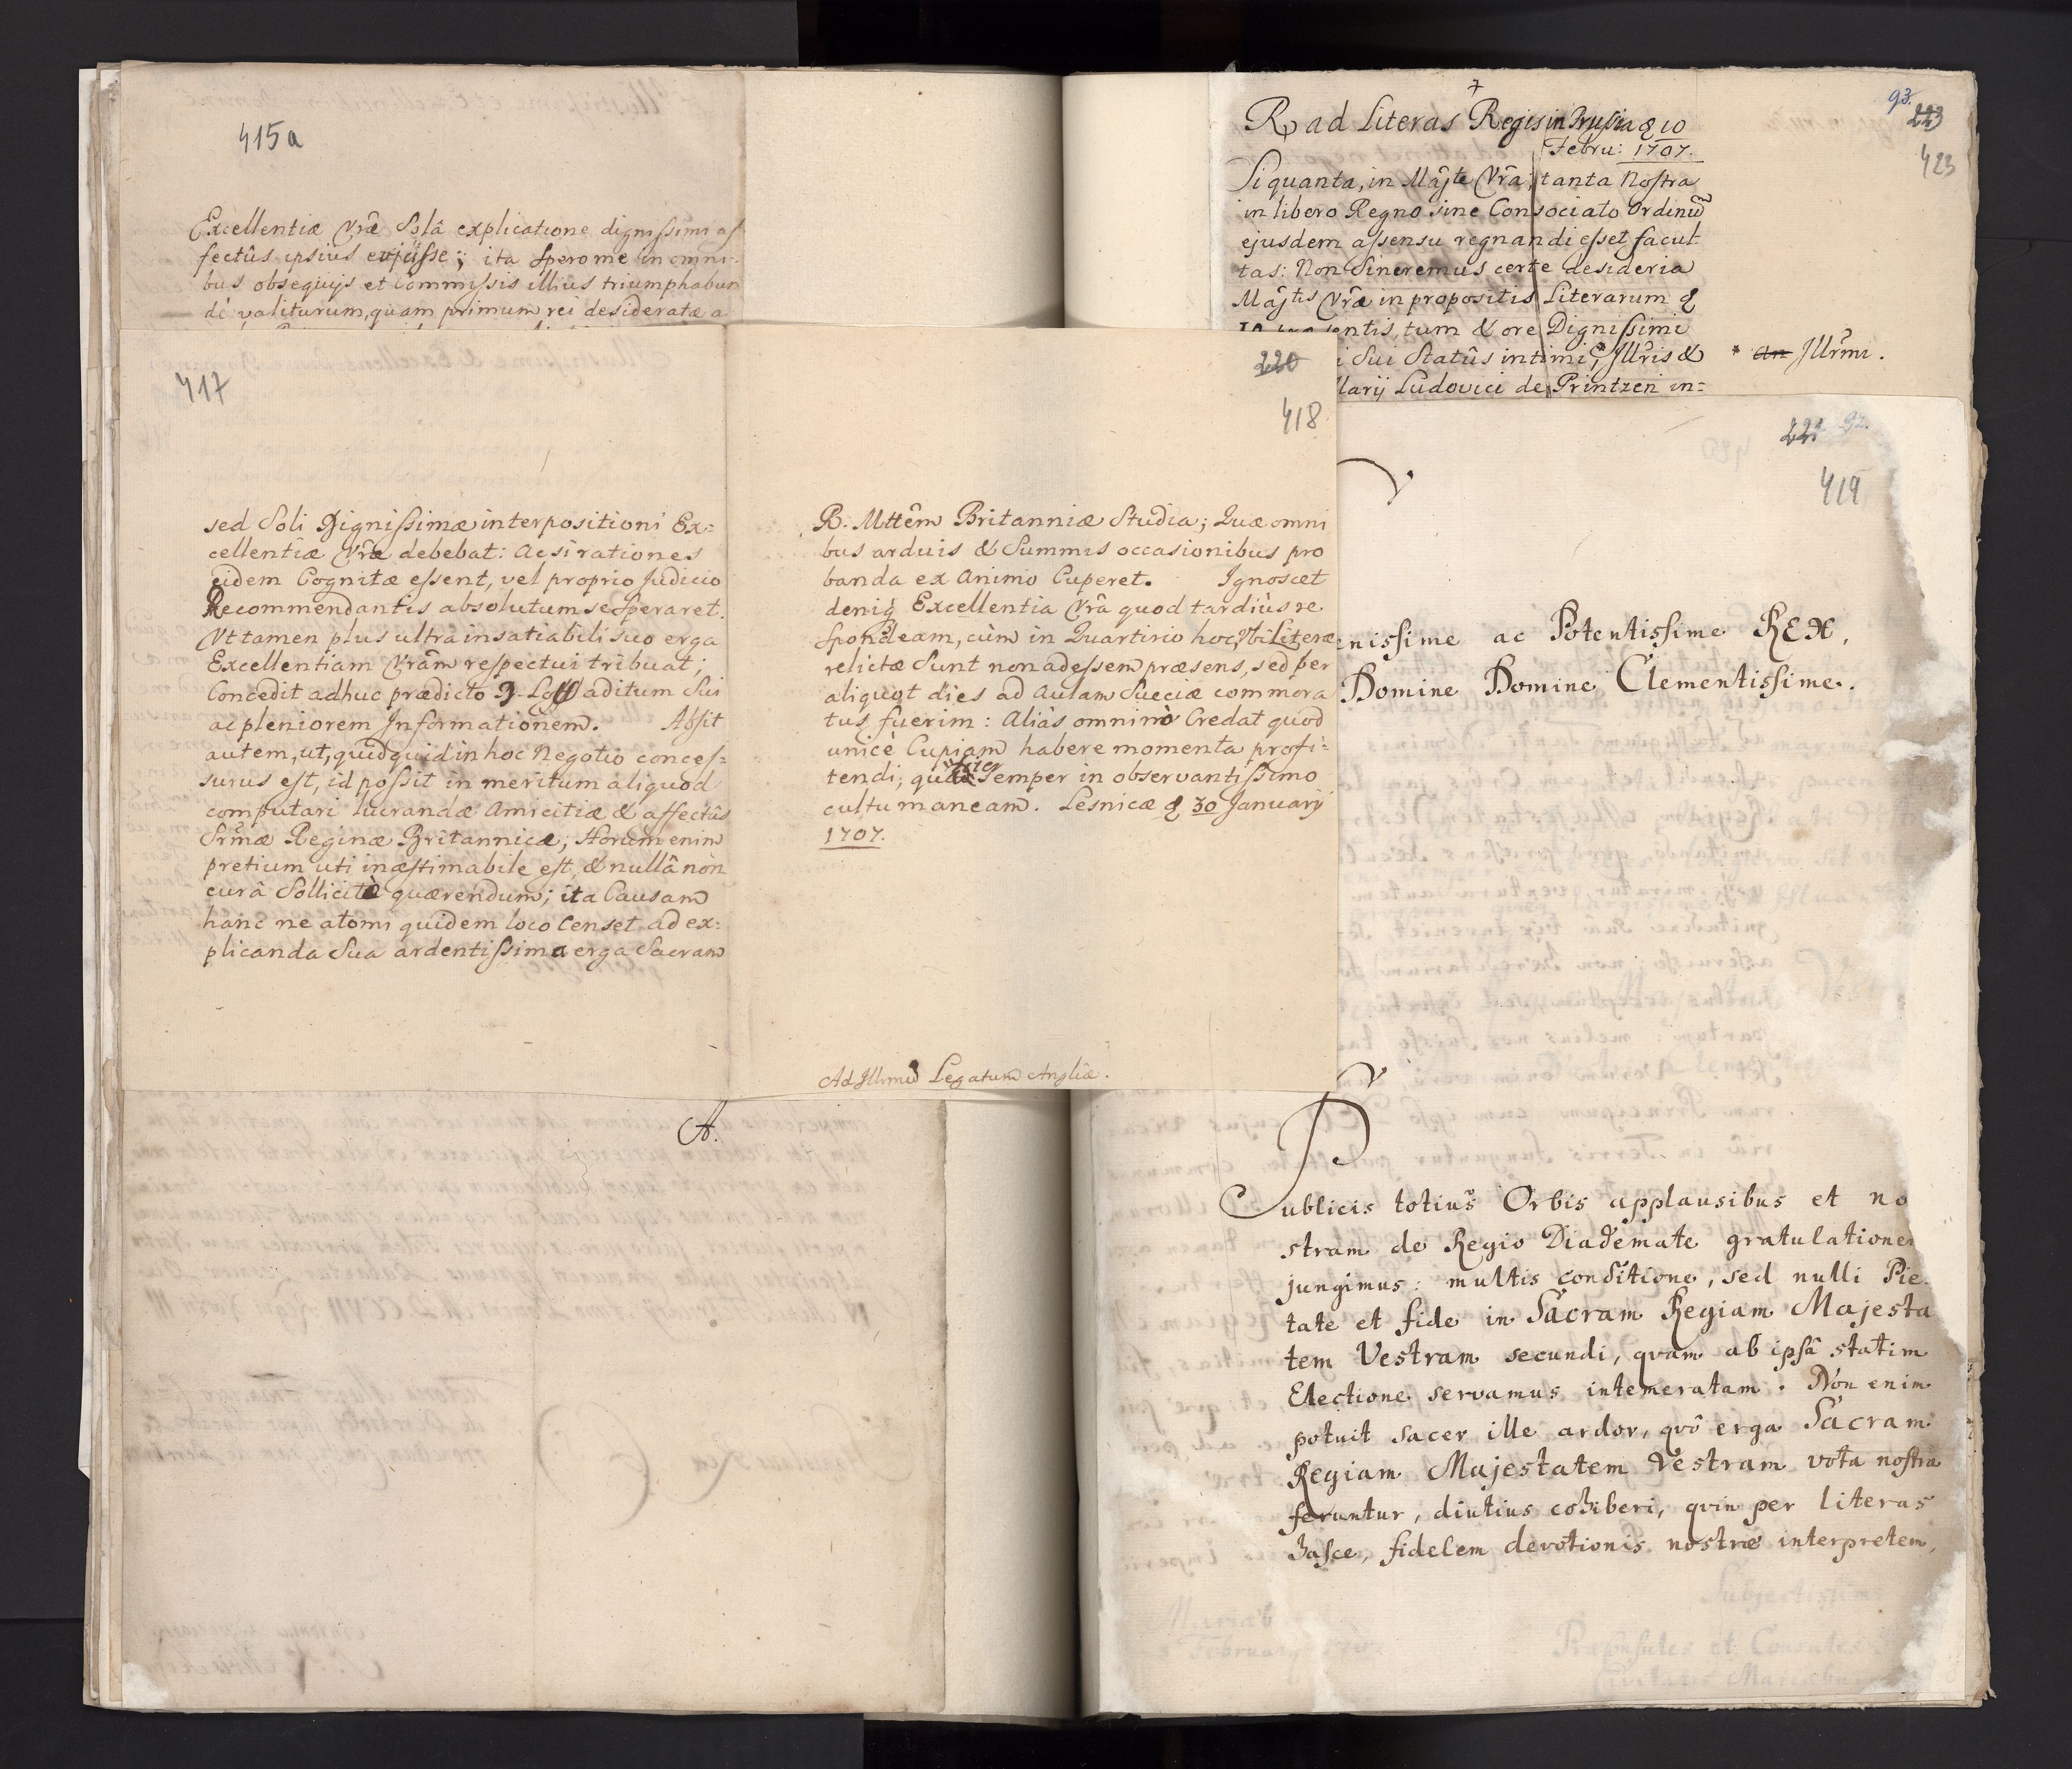 415a
Excellentiæ Vræ Solâ explicatione dignissimi af
fectûs ipsius evjcisse; ita Spero me in omni-
bus obsequijs et Commissis illius triumphabun
dè valiturum, quam primum rei desideratæ a
417
sed Soli Dignissimæ interpositioni Ex=
cellentiæ Vræ debebat: ac si rationes
eidem Cognitæ essent, vel proprio Judicio
Recommendantis absolutum se Speraret.
Vt tamen plus ultra insatiabili suo erga
Excellentiam Vrâm respectui tribuat;
Concedit adhuc prædicto aditum Sui
ac pleniorem Informationem. Absit
autem, ut, quidquid in hoc Negotio conces-
surus est, id possit in meritum aliquod
computari lucrandæ Amicitiæ & affectûs
Srmæ Reginæ Britannicæ; Horum enim
pretium uti inæstimabile est, & nullâ non
curâ Sollicitè quærendum; ita Causam
hanc ne atomi quidem loco Censet ad ex:
plicanda Sua ardentissima erga Sacram
220
418
R. Mttêm Britanniæ Studia; Quæ omni
bus arduis & Summis occasionibus pro
banda ex Animo Cuperet. Ignoscet
deniq Excellentia Vrâ quod tardiùs re
spondeam, cùm in Quartirio hoc, Vbi Literæ
relictæ Sunt non adessem præsens, sed per
aliquot dies ad Aulam Sueciæ commora
tus fuerim: Aliàs omninò Credat quod
unicè Cupiam habere momenta profi=
tendi, semper in observantissimo
cultu maneam. Lesnicæ d 30 Januarij
1707.
Ad Illrmū Legatum Angliæ.
A.
93.
223
423
R ad Literas Regis in Prussia d 10
Febru: 1707.
Si quanta, in Mâjte Vrâ, tanta Nostra
in libero Regno sine Consociato Ordinū
ejusdem assensu regnandi esset facul
tas: Non Sineremus certe desideria
Mâjtis Vrâ in propositis Literarum d
entis, tum & ore Dignissimi
i Sui Statûs intimi, Jllris & * an Jllrmi.
larij Ludovici de Printzen in=
221 92.
419
nissime ac Potentissime REX,
Domine Domine Clementissime.
Publicis totius Orbis applausibus et no
stram de Regio Diademate gratulationem
jungimus: multis conditione, sed nulli Pie
tate et fide in Sacram Regiam Majesta
tem Vestram secundi, qvam ab ipsâ statim
Electione servamus intemeratam. Non enim
potuit sacer ille ardor, qvô erga Sacram
Regiam Majestatem Vestram vota nostra
feruntur, diutius cohiberi, qvin per literas
hasce, fidelem devotionis nostræ interpretem,